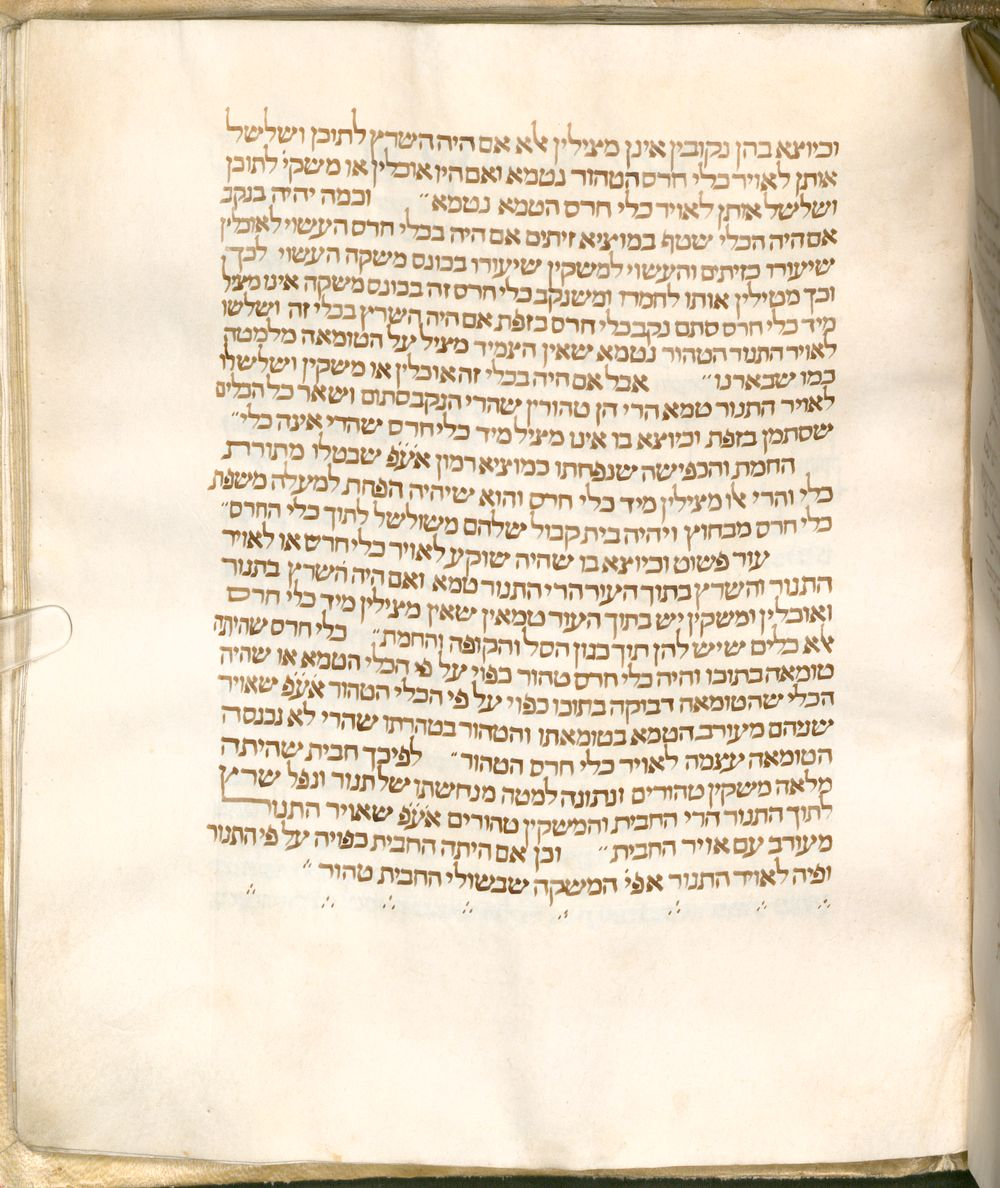 וכיוצא בהן נקובין אינן מצילין אלא אם היה השרץ לתוכן ושלשל
אותן לאויר כלי חרס הטהור נטמא ואם היו אוכלין או משקי׳ לתוכן
ושלשל אותן לאויר כלי חרס הטמא נטמא״ וכמה יהיה בנקב
אם היה הכלי שטף במוציא זיתים אם היה בכלי חרס העשוי לאוכלין
שיעורו כזיתים והעשוי למשקין שיעורו בכונס משקה העשוי לכך
וכך מטילין אותו לחמרו ומשנקב כלי חרס זה בכונס משקה אינו מציל
מיד כלי חרס סתם נקב כלי חרס בזפת אם היה השרץ בכלי זה ושלשו
לאויר התנור הטהור נטמא שאין הצמיד מציל על הטומאה מלמטה
כמו שבארנו״ אבל אם היה בכלי זה אוכלין או משקין ושלשלו
לאויר התנור טמא הרי הן טהורין שהרי הנקב סתום ושאר כל הכלים
שסתמן בזפת וכיוצא בו אינו מציל מיד כלי חרס שהרי אינה כלי״
החמת והכפישה שנפחתו כמוציא רמון אע״פ שבטלו מתורת
כלי והרי אלו מצילין מיד כלי חרס והוא שיהיה הפחת למעלה משפת
כלי חרס מבחוץ ויהיה בית קבול שלהם משולשל לתוך כלי החרס״
עור פשוט וכיוצא בו שהיה שוקע לאויר כלי חרס או לאויר
התנור והשרץ בתוך העור הרי התנור טמא ואם היה השרץ בתנור
ואוכלין ומשקין יש בתוך העור טמאין שאין מצילין מיד כלי חרס
אלא כלים שיש להן תוך כגון הסל והקופה והחמת״ כלי חרס שהיתה
טומאה בתוכו והיה כלי חרס טהור כפוי על פי הכלי הטמא או שהיה
הכלי שהטומאה דבוקה בתוכו כפוי על פי הכלי הטהור אע״פ שאויר
שניהם מעורב הטמא בטומאתו והטהור בטהרתו שהרי לא נכנסה
הטומאה עצמה לאויר כלי חרס הטהור״ לפיכך חבית שהיתה
מלאה משקין טהורים ונתונה למטה מנחשתו של תנור ונפל שרץ
לתוך התנור הרי החבית והמשקין טהורים אע״פ שאויר התנור
מעורב עם אויר החבית״ וכן אם היתה החבית כפויה על פי התנור
ופיה לאויר התנור אפי׳ המשקה שבשולי החבית טהור״